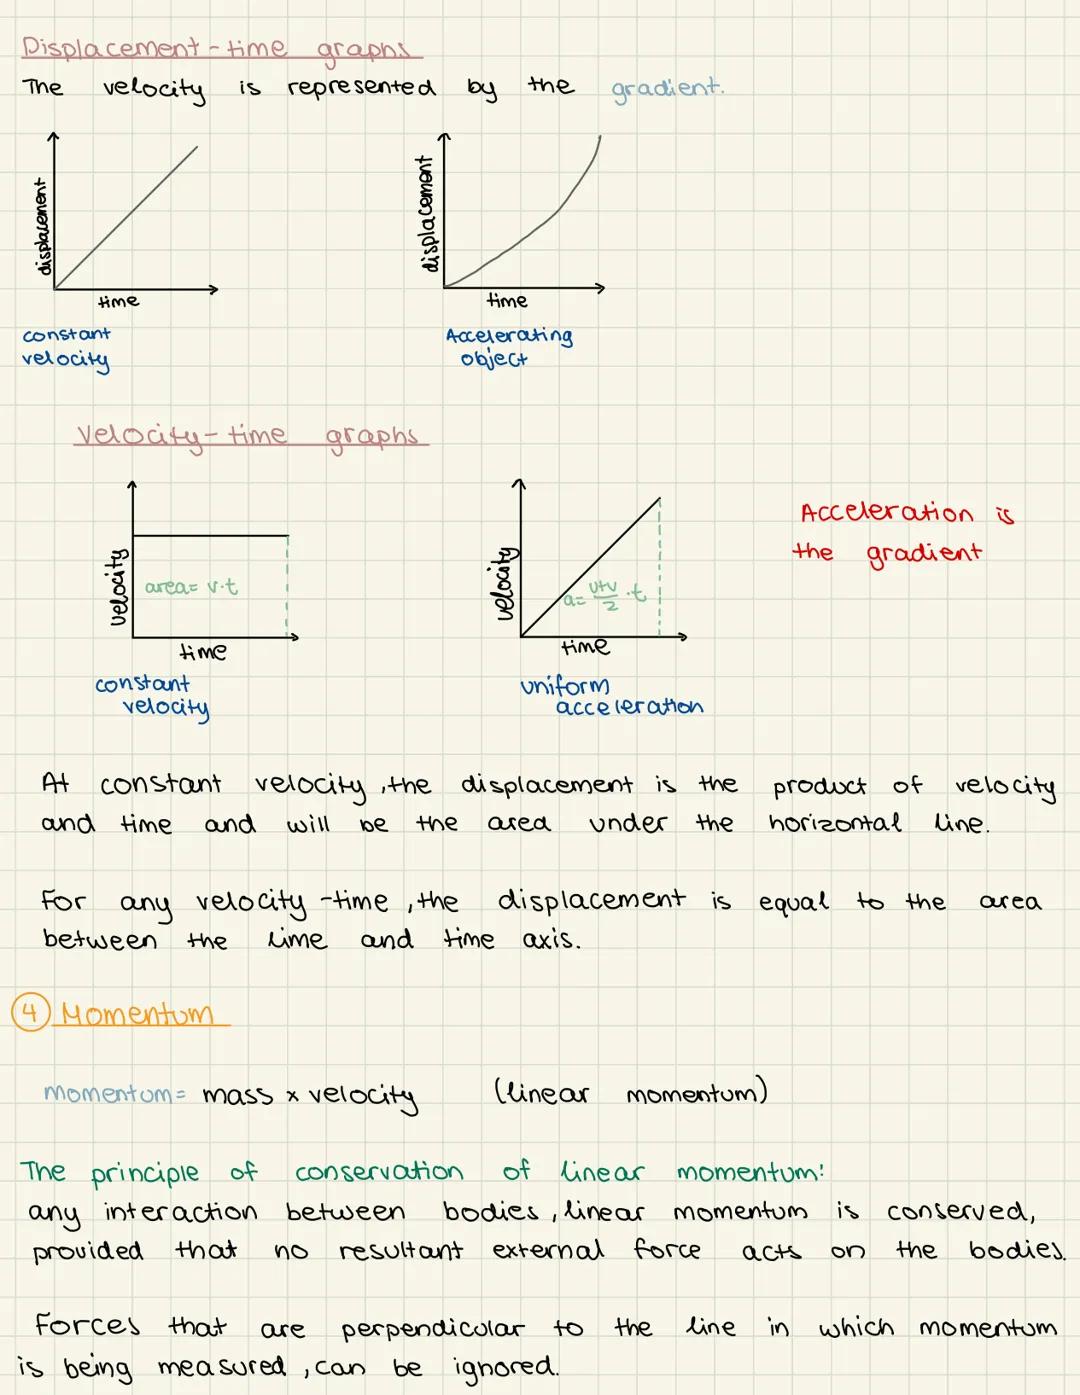 Displacement-time graphs
The velocity is represented by the gradient.
displacement
time
constant
velocity
displacement
time
Accelerating
object
Velocity-time graphs
velocity
area= v·t
time
constant
velocity
velocity
a= u+v/2 ·t
time
uniform
acceleration
Acceleration is
the gradient
At constant velocity, the displacement is the product of velocity
and time and will be the area under the horizontal line.
For any velocity-time, the displacement is equal to the area
between the lime and time axis.
4 Momentum
momentum= mass x velocity (linear momentum)
The principle of conservation of linear momentum:
any interaction between bodies, linear momentum is conserved,
provided that no resultant external force acts on the bodies.
Forces that are perpendicular to the line in which momentum
is being measured, can be ignored.